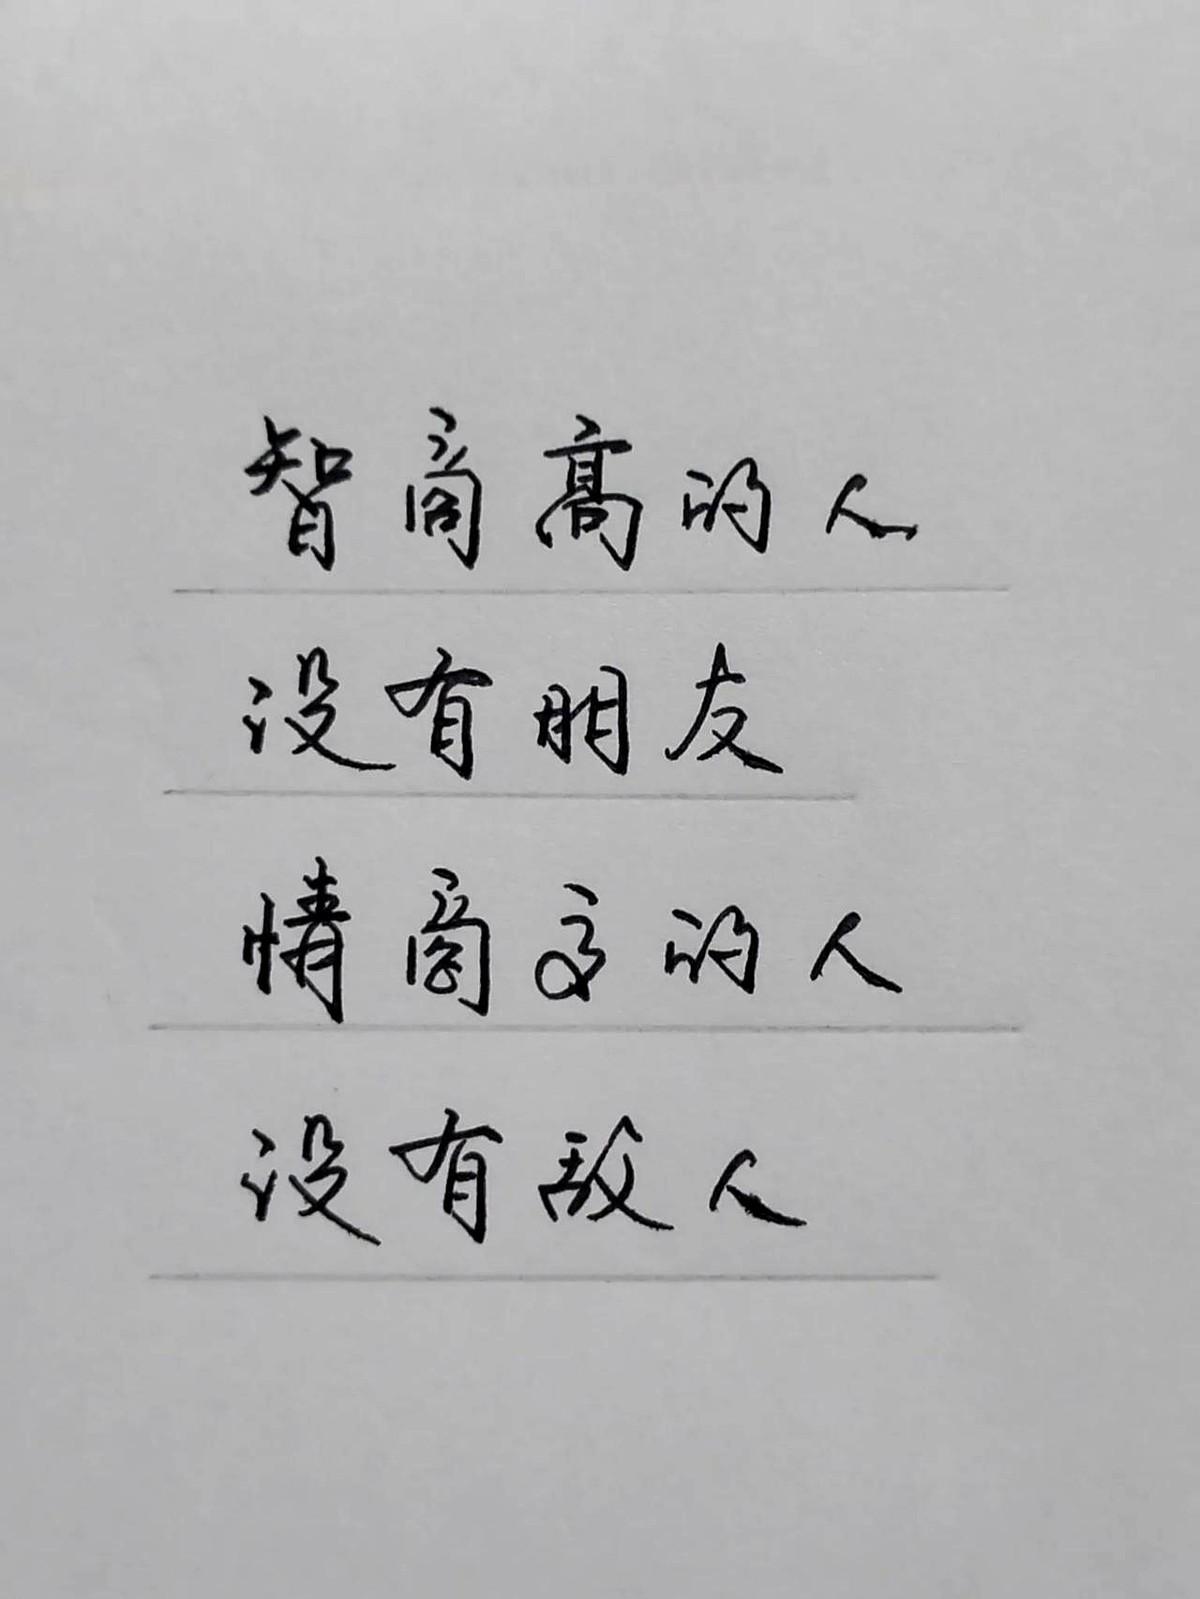 智商高的人
没有朋友
情商高的人
没有敌人